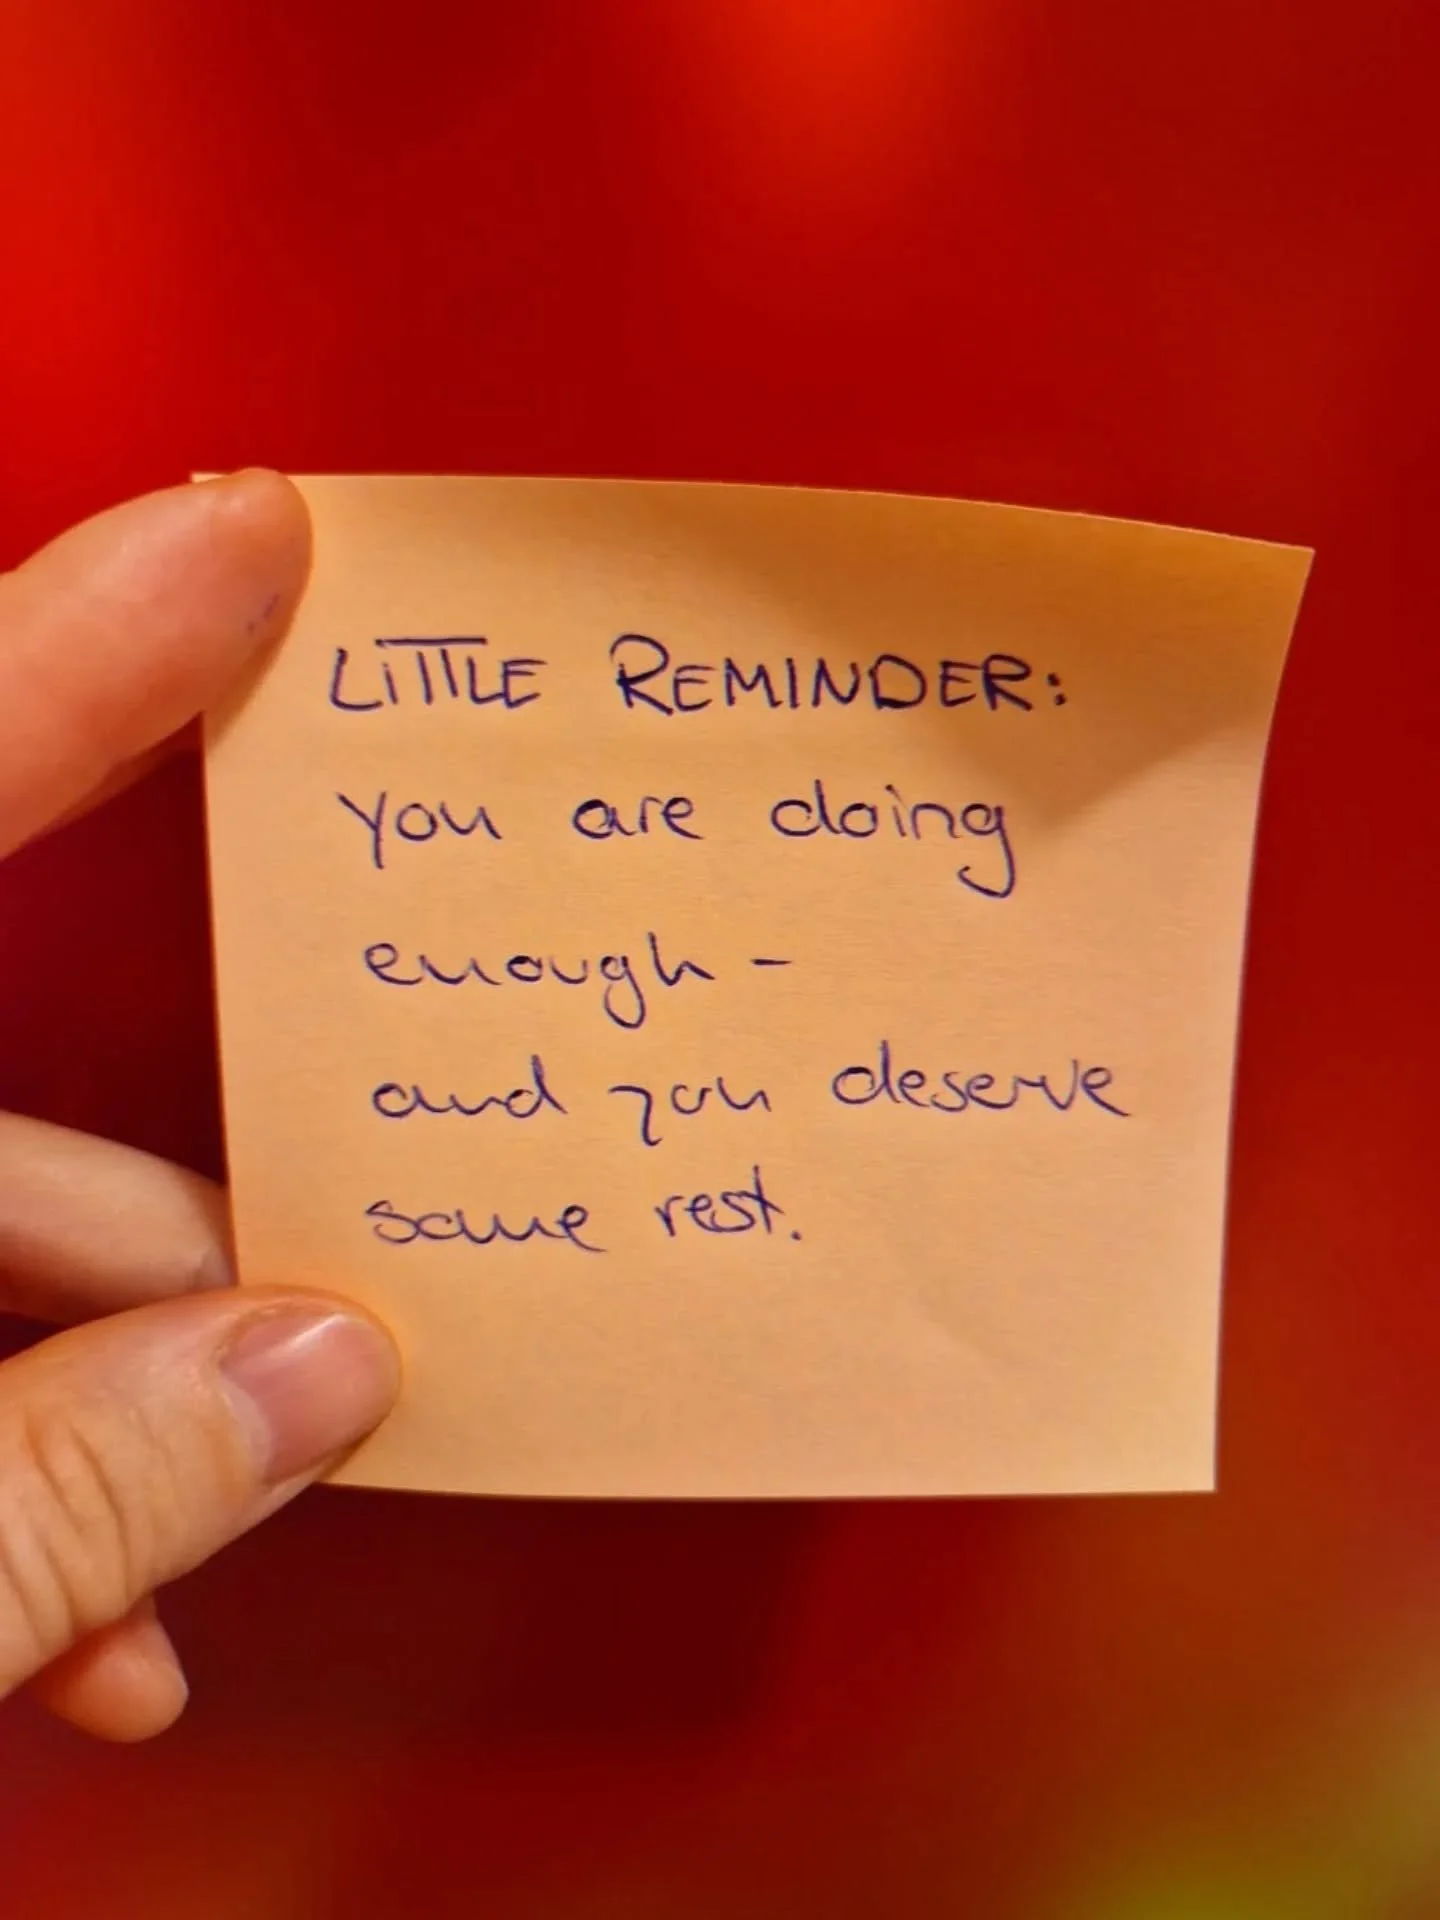 LiTTLE REMINDER:
you are doing
enough -
and you deserve
some rest.